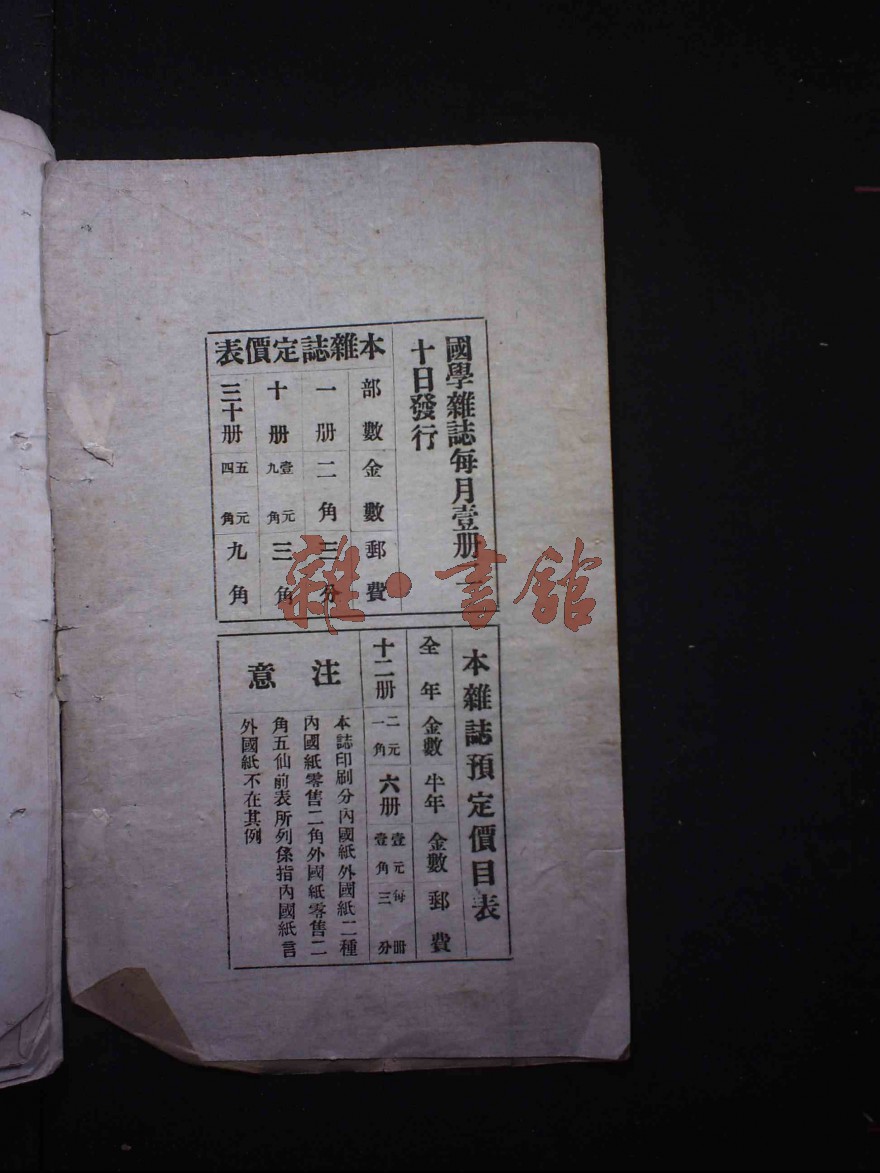 國學雜誌每月壹册二
十日發行
本雜誌定價表
部數 金數 郵費
一册 二角 三分
十册 壹元九角 三角
三十册 五元四角 九角
本雜誌預定價目表
全年 金數 半年 金數 郵費
十二册 二元一角 六册 壹元壹角 每册三分
注意
本誌印刷分內國紙外國紙二種
內國紙零售二角外國紙零售二
角五仙前表所列係指內國紙言
外國紙不在其例
雜·書館